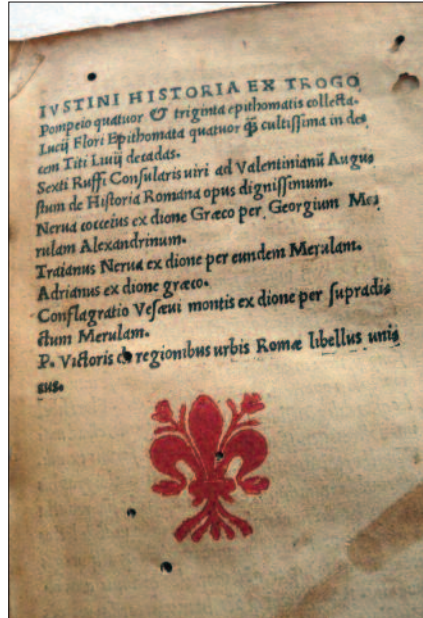 IVSTINI HISTORIA EX TROGO
Pompeio quatuor & triginta epithomatis collecta.
Lucij Flori Epithomata quatuor q̃ȝ cultissima in de⸗
cem Titi Liuij decadas.
Sexti Ruffi Consularis uiri ad Valentinianũ Augu⸗
stum de Historia Romana opus dignissimum.
Nerua cocceius ex dione Græco per Georgium Me⸗
rulam Alexandrinum.
Traianus Nerua ex dione per eundem Merulam.
Adrianus ex dione græco.
Conflagratio Vesæui montis ex dione per supradi⸗
ctum Merulam.
P. Victoris de regionibus urbis Romæ libellus uni⸗
cus.